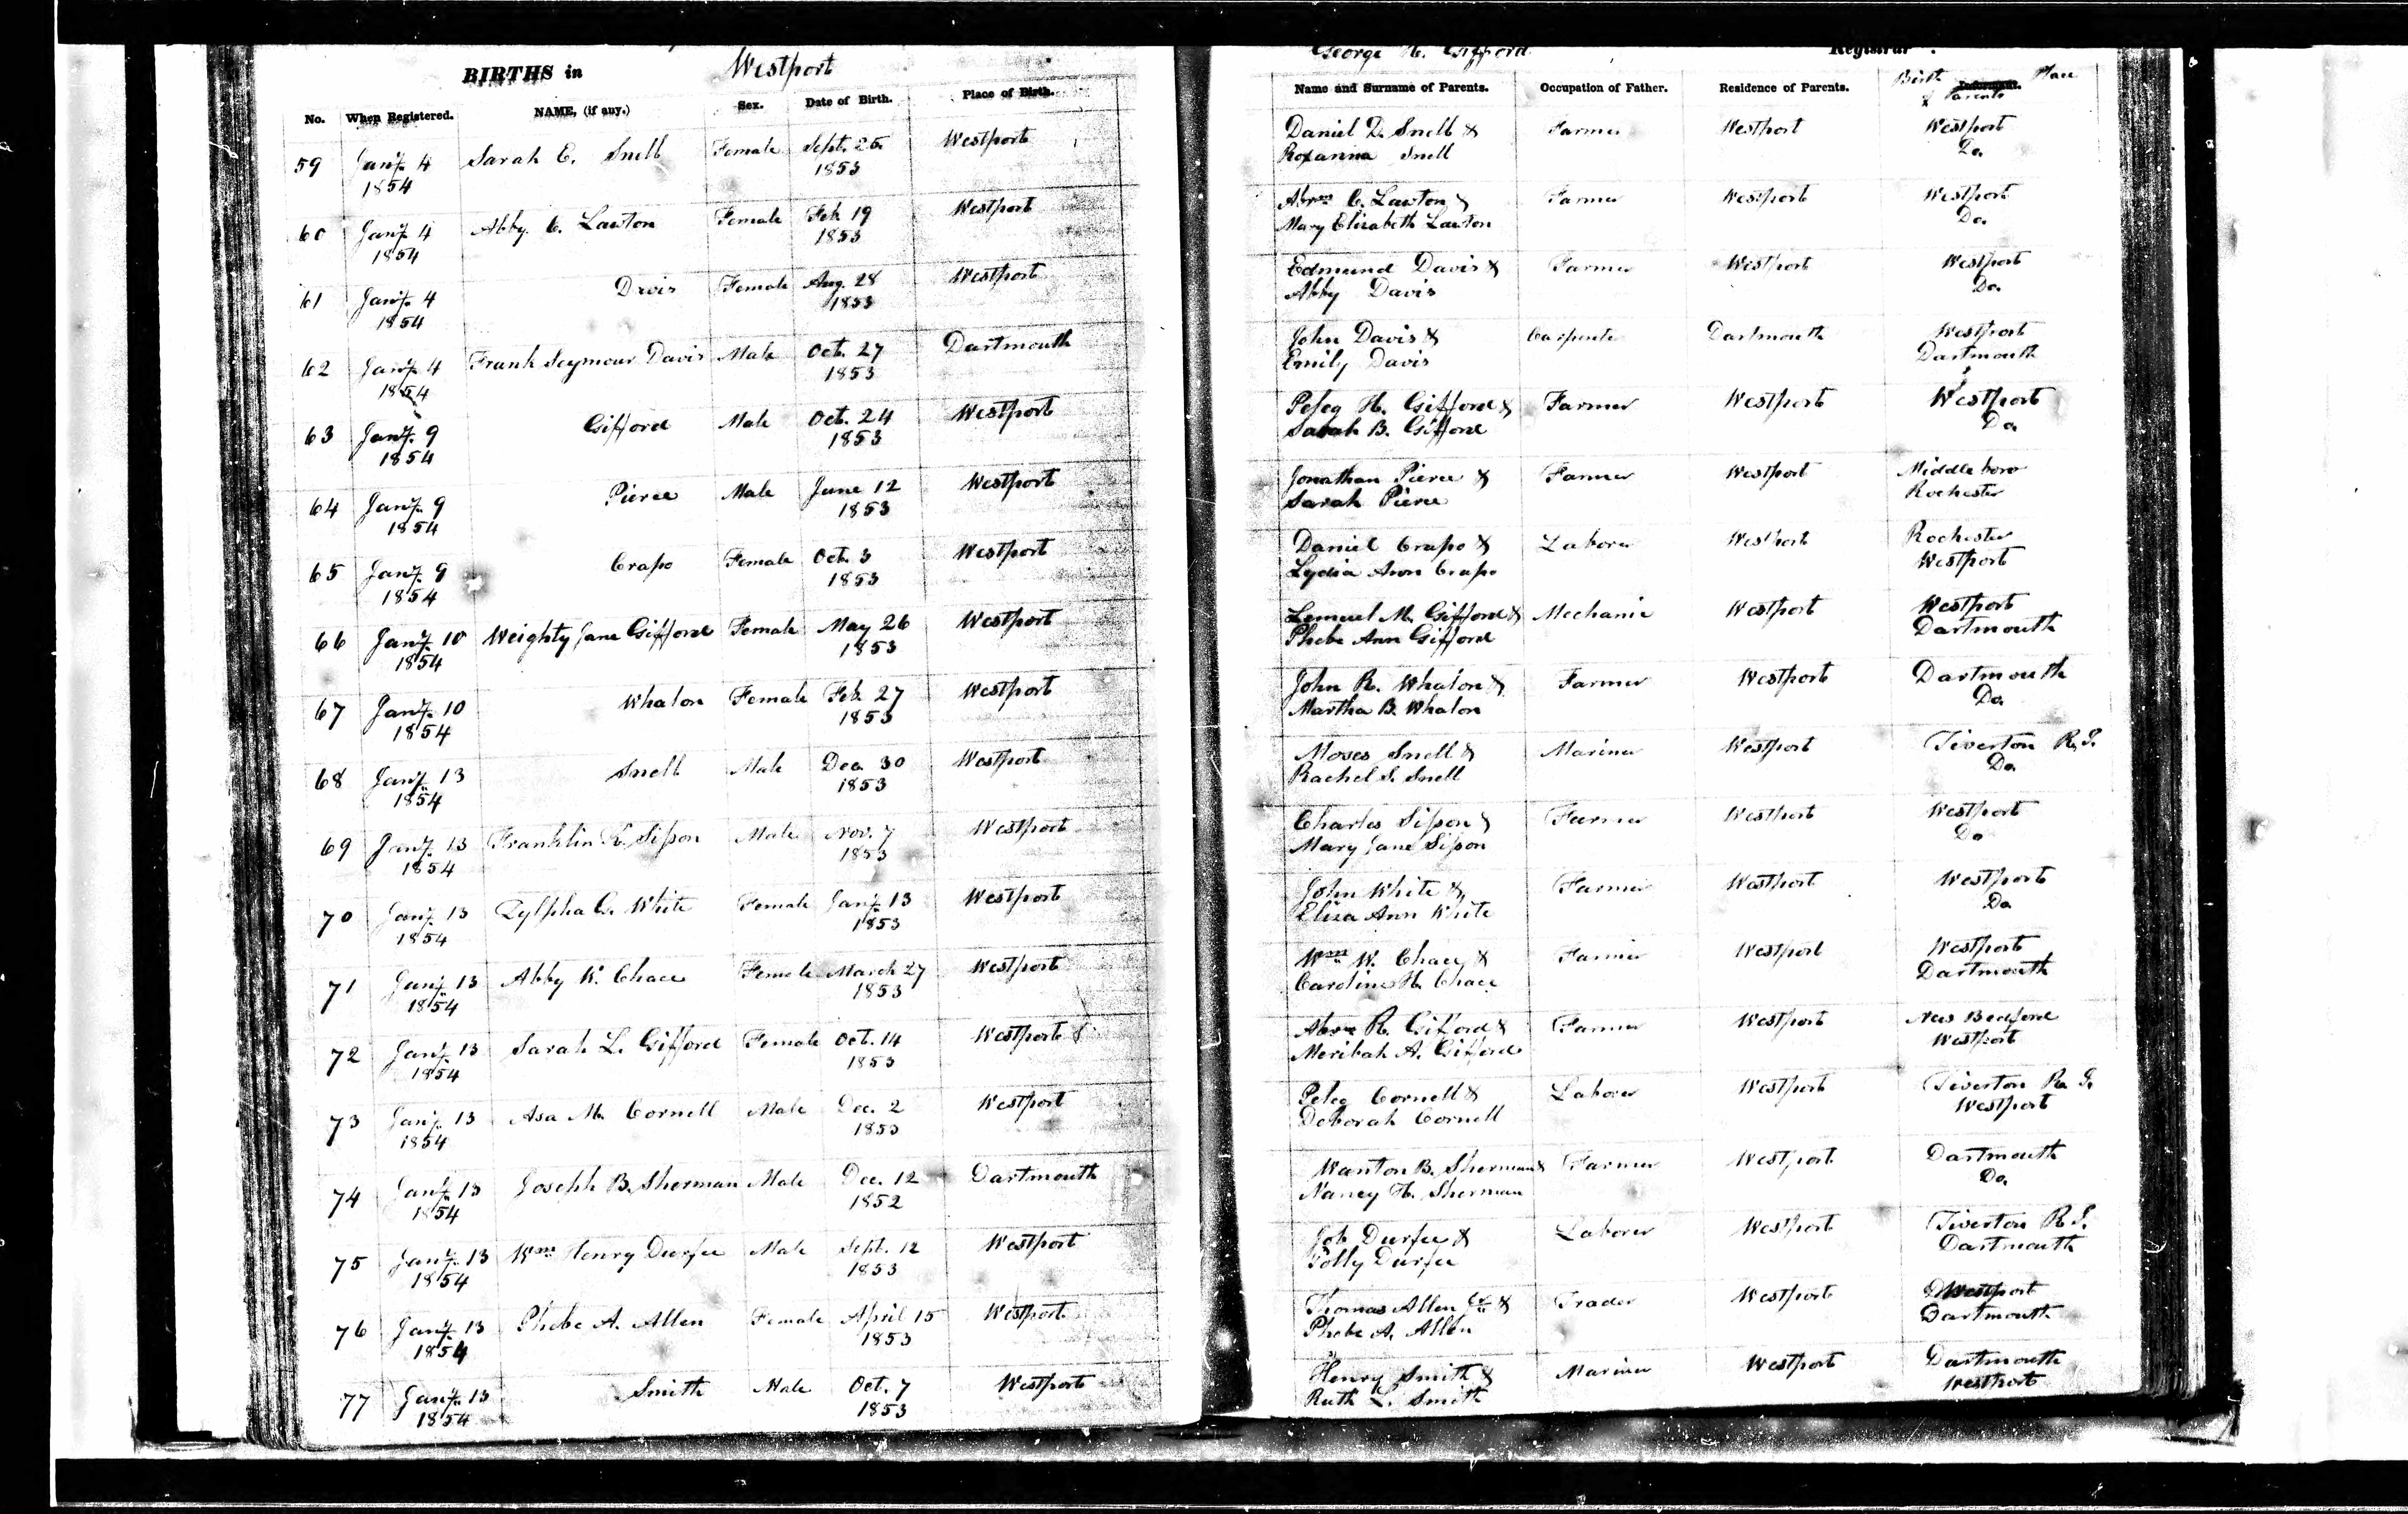 BIRTHS in Westport
No. When Registered. NAME, (if any.) Sex. Date of Birth. Place of Birth.
59 Jany. 4 Sarah E. Snell Female Sept. 25 Westport
1854 1853
60 Jany. 4 Abby C. Lawton Female Feb 19 Westport
1854 1853
61 Jany. 4 Davis Female Aug. 28 Westport
1854 1853
62 Jany. 4 Frank Seymour Davis Male Oct. 27 Dartmouth
1854 1853
63 Jany. 9 Gifford Male Oct. 24 Westport
1854 1853
64 Jany. 9 Pierce Male June 12 Westport
1854 1853
65 Jany. 9 Crapo Female Oct. 3 Westport
1854 1853
66 Jany. 10 Weighty Jane Gifford Female May 26 Westport
1854 1853
67 Jany. 10 Whalon Female Feb 27 Westport
1854 1853
68 Jany. 13 Snell Male Dec. 30 Westport
1854 1853
69 Jany. 13 Franklin R. Sisson Male Nov. 7 Westport
1854 1853
70 Jany. 13 Zylpha White Female Jany. 13 Westport
1854 1853
71 Jany. 13 Abby W. Chace Female March 27 Westport
1854 1853
72 Jany. 13 Sarah L. Gifford Female Oct. 14 Westport
1854 1853
73 Jany. 13 Asa M. Cornell Male Dec. 2 Westport
1854 1853
74 Jany. 13 Joseph B. Sherman Male Dec. 12 Dartmouth
1854 1852
75 Jany. 13 Wm Henry Durfee Male Sept. 12 Westport
1854 1853
76 Jany. 13 Phebe A. Allen Female April 15 Westport
1854 1853
77 Jany. 13 Smith Male Oct. 7 Westport
1854 1853
George H. Gifford Registrar.
Name and Surname of Parents. Occupation of Father. Residence of Parents. Birth Place
of Parents
Daniel T. Snell & Farmer Westport Westport
Roxanna Snell Do.
Abrm C. Lawton & Farmer Westport Westport
Mary Elizabeth Lawton Do.
Edmund Davis & Farmer Westport Westport
Abby Davis Do.
John Davis & Carpenter Dartmouth Westport
Emily Davis Dartmouth
Peleg H. Gifford & Farmer Westport Westport
Sarah B. Gifford Do.
Jonathan Pierce & Farmer Westport Middleboro
Sarah Pierce Rochester
Daniel Crapo & Laborer Westport Rochester
Lydia Ann Crapo Westport
Lemuel M. Gifford & Mechanic Westport Westport
Phebe Ann Gifford Dartmouth
John R. Whalon & Farmer Westport Dartmouth
Martha B. Whalon Do.
Moses Snell & Mariner Westport Tiverton R.I.
Rachel S. Snell Do.
Charles Sisson & Farmer Westport Westport
Mary Jane Sisson Do
John White & Farmer Westport Westport
Eliza Ann White Do
Wm W. Chace & Farmer Westport Westport
Caroline H. Chace Dartmouth
Abrm R. Gifford & Farmer Westport New Bedford
Meribah A. Gifford Westport
Peleg Cornell & Laborer Westport Tiverton R.I.
Deborah Cornell Westport
Wanton B. Sherman & Farmer Westport Dartmouth
Nancy H. Sherman Do.
Job Durfee & Laborer Westport Tiverton R.I.
Polly Durfee Dartmouth
Thomas Allen & Trader Westport Westport
Phebe A. Allen Dartmouth
Henry Smith & Mariner Westport Dartmouth
Ruth L. Smith Westport